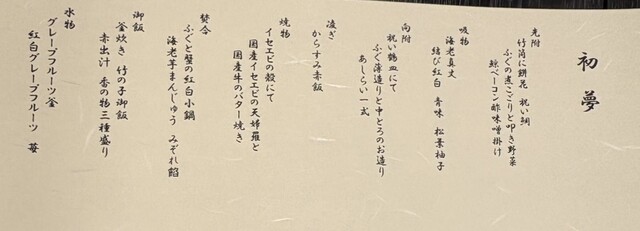 初夢
先附
竹筒に餅花 祝い鯛
ふぐの煮こごりと叩き野菜
鯨ベーコン酢味噌掛け
吸物
海老真丈
結び紅白 青味 松葉柚子
向附
祝い鶴皿にて
ふぐ薄造りと中とろのお造り
あしらい一式
凌ぎ
からすみ赤飯
焼物
イセエビの殻にて
国産イセエビの天婦羅と
国産牛のバター焼き
焚合
ふぐと蟹の紅白小鍋
海老芋まんじゅう みぞれ餡
御飯
釜炊き 竹の子御飯
赤出汁 香の物三種盛り
水物
グレープフルーツ釜
紅白グレープフルーツ 苺